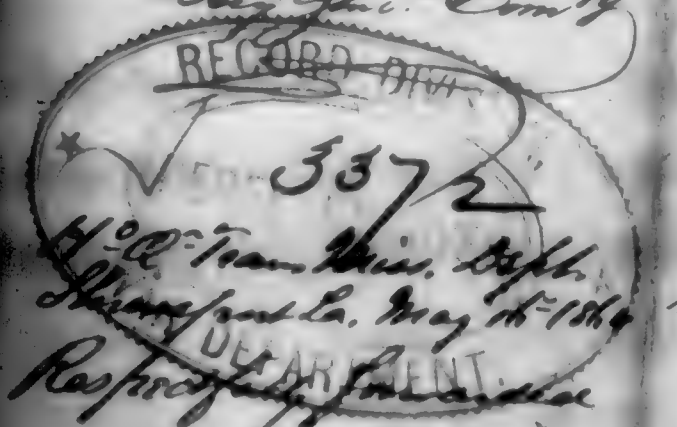 Genl. Comdg
RECORD DIV.
3372
Hd Qrs Trans Miss. Dept.
Shreveport La. May 1864
DEPARTMENT.
Respectfully forwarded